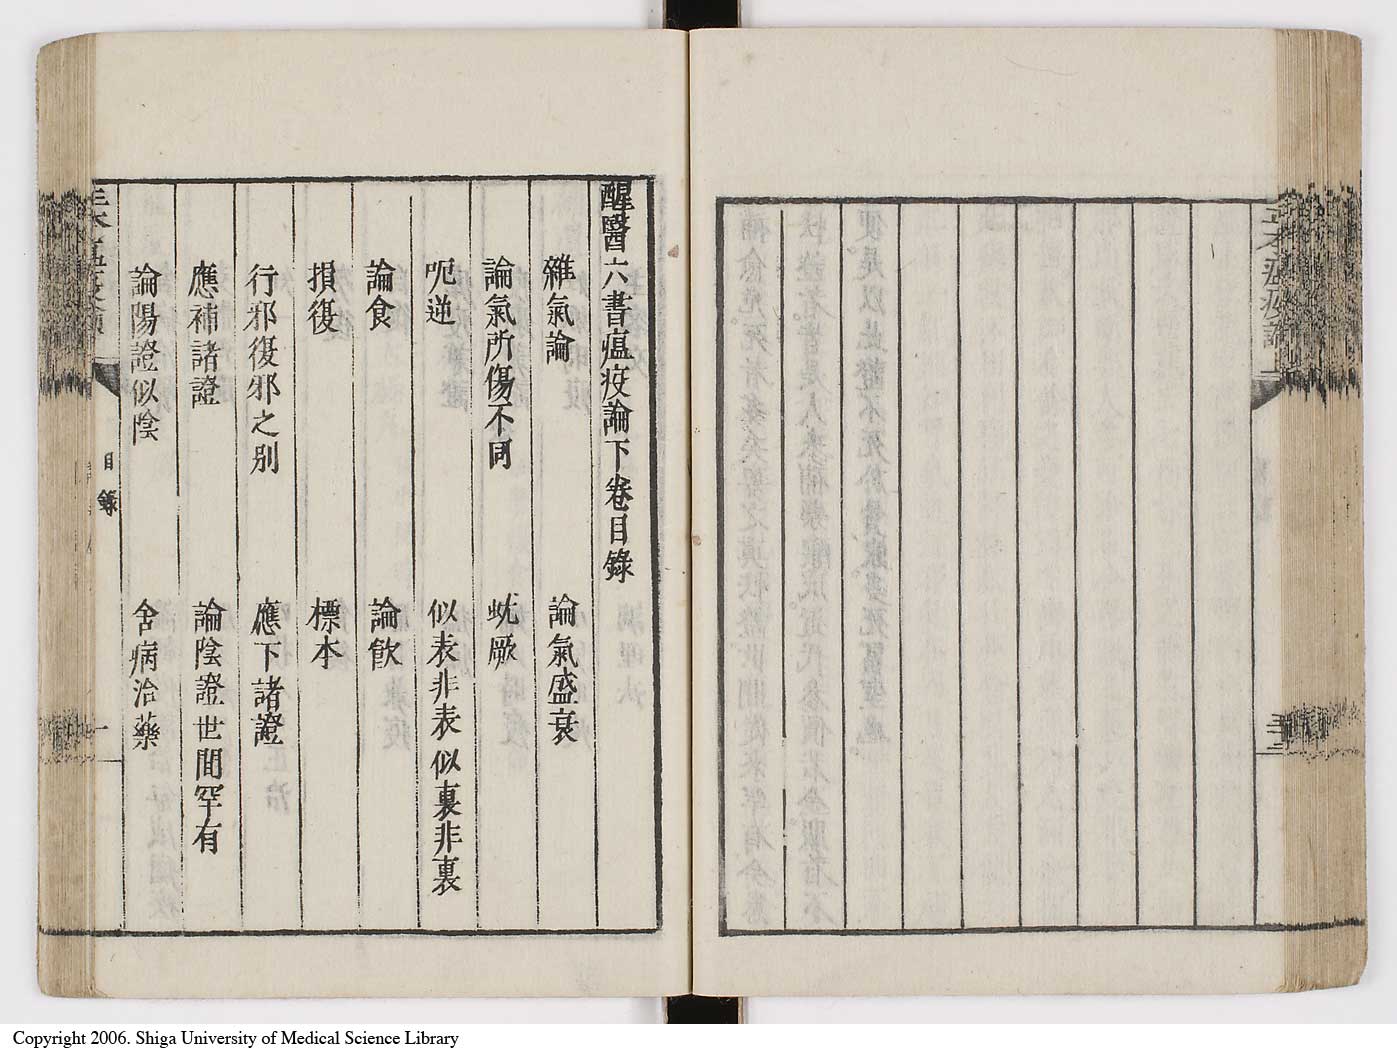 醒醫六書瘟疫論下卷目錄
雜氣論　論氣盛衰
論氣所傷不同　蚘厥
呃逆　似表非表似裏非裏
論食　論飲
損復　標本
行邪復邪之別　應下諸證
應補諸證　論陰證世間罕有
論陽證似陰　舍病治藥
目錄
一
Copyright 2006. Shiga University of Medical Science Library